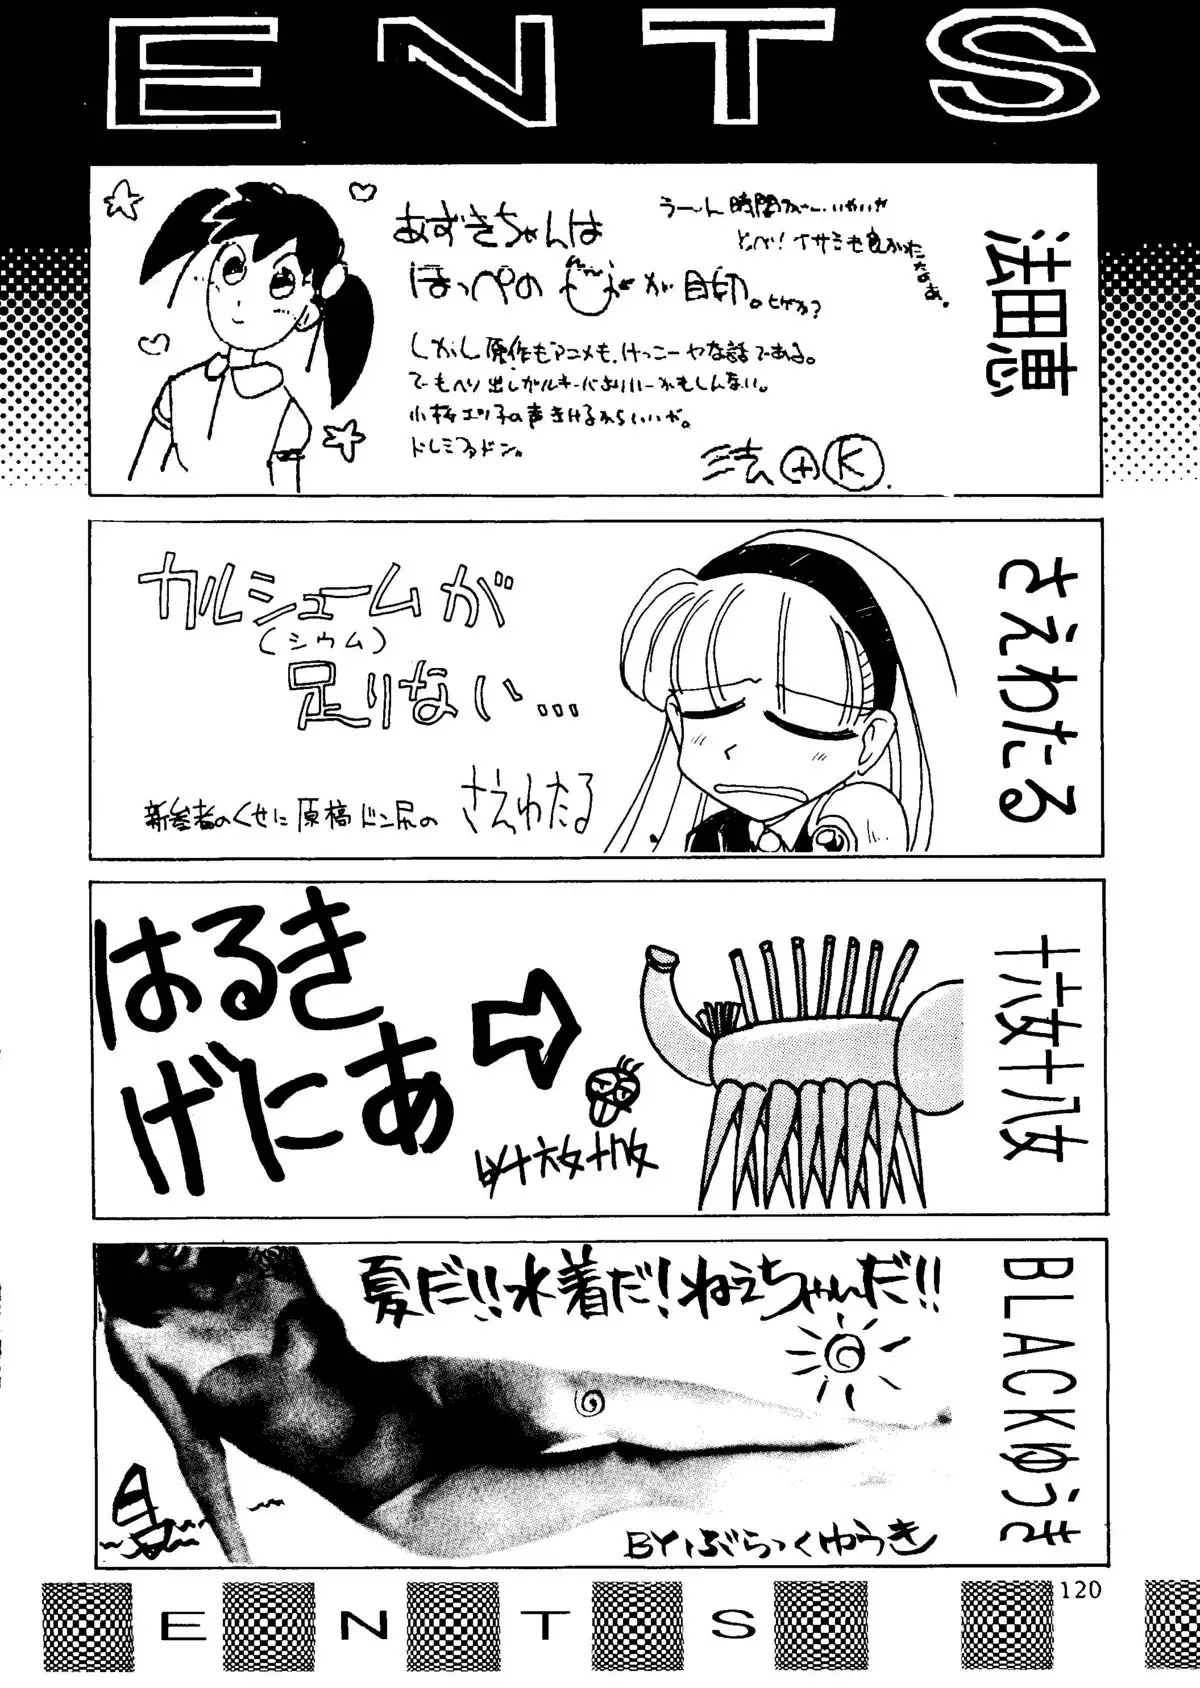 ENTS
法田恵
あずきちゃんは
ほっぺの
が目印。ヒゲか?
うーん時間が…いやいや
とべ!イサミも良かったなあ。
しかし原作もアニメも、けっこーヤな話である。
でもへり出しがルキーバよりいーかもしんない。
小桜エツ子の声きけるからいいが。
ドレミファドン。
法田K.
さえわたる
カルシュームが
(シウム)
足りない…
新参者のくせに原稿ドン尻の
さえわたる
十六女十八女
はるき
げにあ
by十六女十八女
BLACKゆうき
夏だ!!水着だ!ねえちゃんだ!!
BY.ぶらっくゆうき
120
ENTS